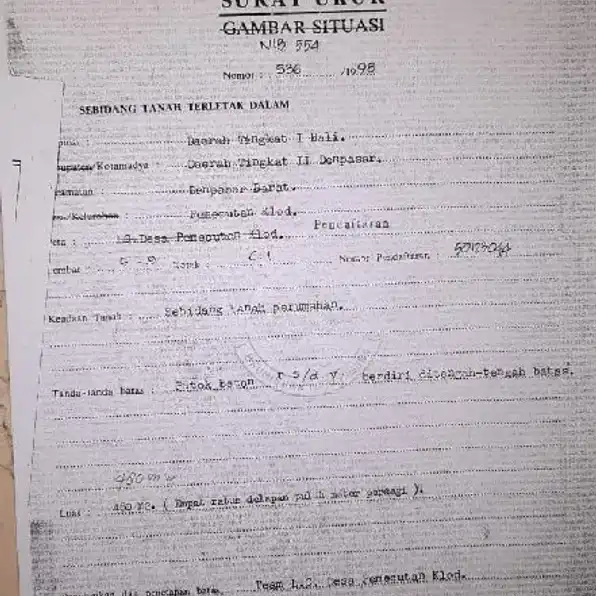 SURAT UKUR
GAMBAR SITUASI
NIB 554
Nomor : 536 /1998
SEBIDANG TANAH TERLETAK DALAM
Daerah Tingkat I Bali.
Kotamadya : Daerah Tingkat II Denpasar.
Denpasar Barat.
Kelurahan : Pemecutan Klod.
Desa Pemecutan Klod. Pendaftaran
Nomor Pendaftaran :
Keadaan Tanah : Sebidang tanah perumahan.
Tanda-tanda batas : Patok beton r s/d v berdiri ditengah-tengah batas.
480
Luas : 480 M2. ( Empat ratus delapan puluh meter persegi ).
penetapan batas Team Desa Pemecutan Klod.